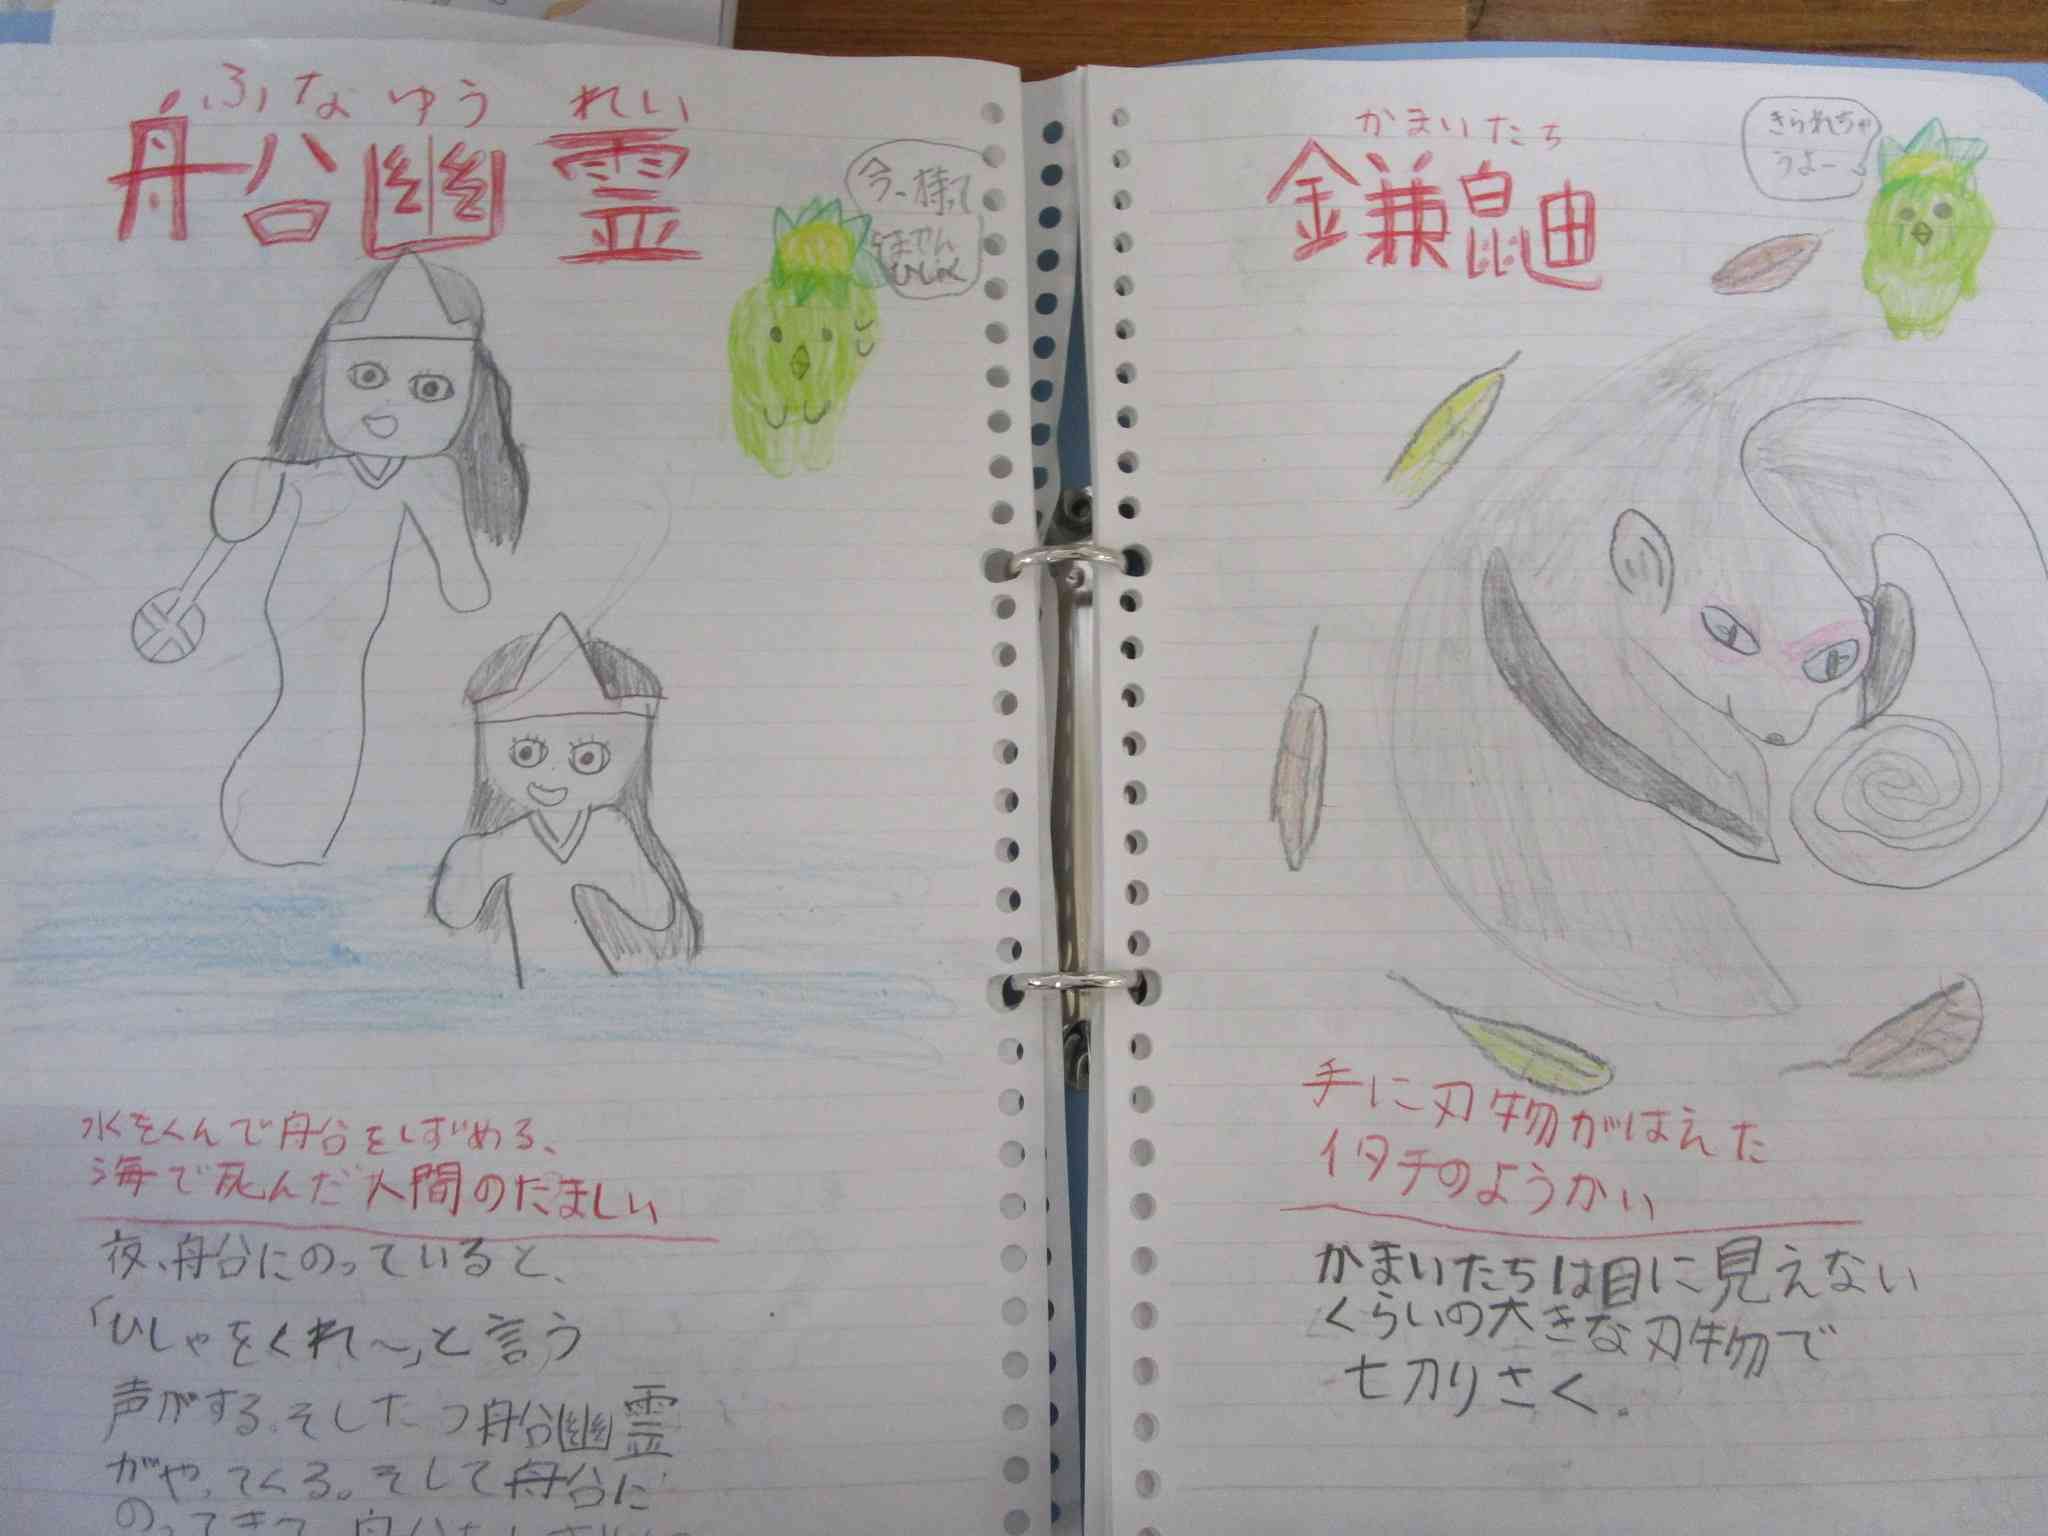 ふなゆうれい
船幽霊
今、持って
ません
ひしゃく
水をくんで船をしずめる、
海で死んだ人間のたましい
夜、船にのっていると、
「ひしゃをくれ〜」と言う
声がする。そしたら船幽霊
がやってくる。そして船に
のってきて、船を
かまいたち
鎌鼬
きられちゃ
うよー
手に刃物がはえた
イタチのようかい
かまいたちは目に見えない
くらいの大きな刃物で
切りさく。